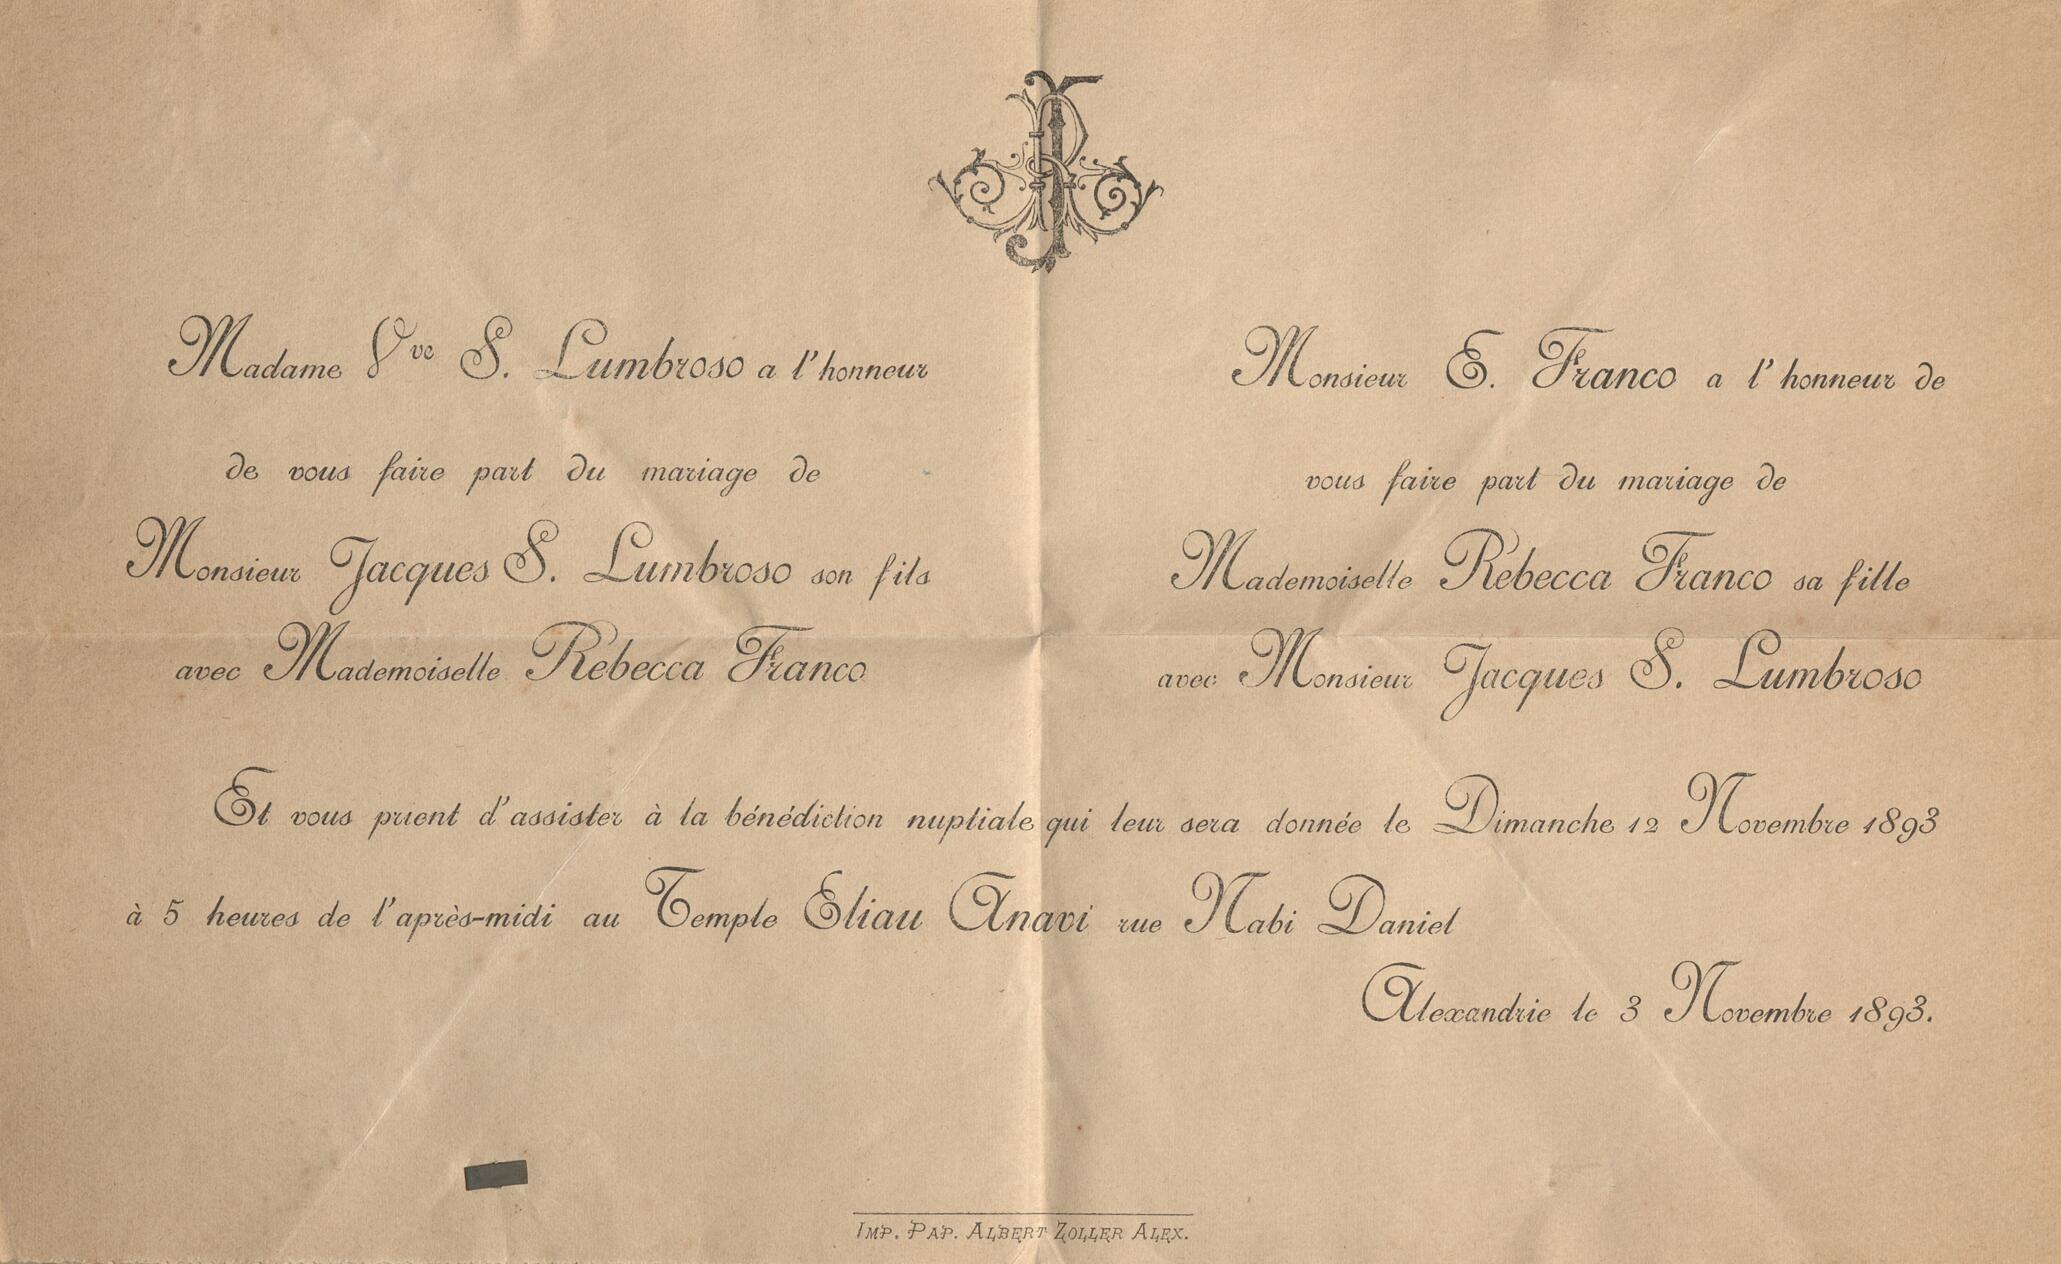 JR
Madame Vve S. Lumbroso a l'honneur
de vous faire part du mariage de
Monsieur Jacques S. Lumbroso son fils
avec Mademoiselle Rebecca Franco
Monsieur E. Franco a l'honneur de
vous faire part du mariage de
Mademoiselle Rebecca Franco sa fille
avec Monsieur Jacques S. Lumbroso
Et vous prient d'assister à la bénédiction nuptiale qui leur sera donnée le Dimanche 12 Novembre 1893
à 5 heures de l'après-midi au Temple Eliau Anavi rue Nabi Daniel
Alexandrie le 3 Novembre 1893.
IMP. PAP. ALBERT ZOLLER ALEX.